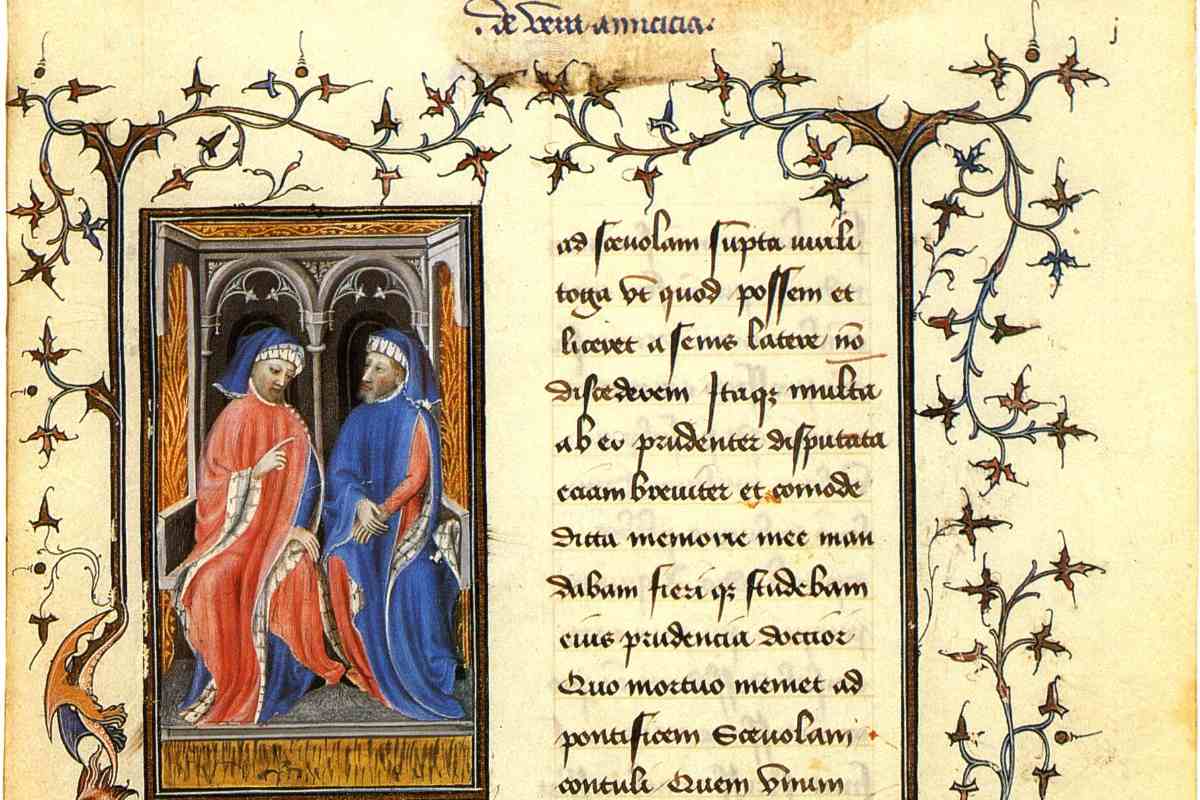 de vera amicicia.
j
ad scevolam supta virili
toga vt quod possem et
liceret a senis latere nō
discederem Itaqꝫ multa
ab eo prudenter disputata
eciam breviter et comode
dicta memorie mee man
dabam fieri qꝫ studebam
eius prudencia doctior
Quo mortuo memet ad
pontificem Scevolam
contuli Quem vnum